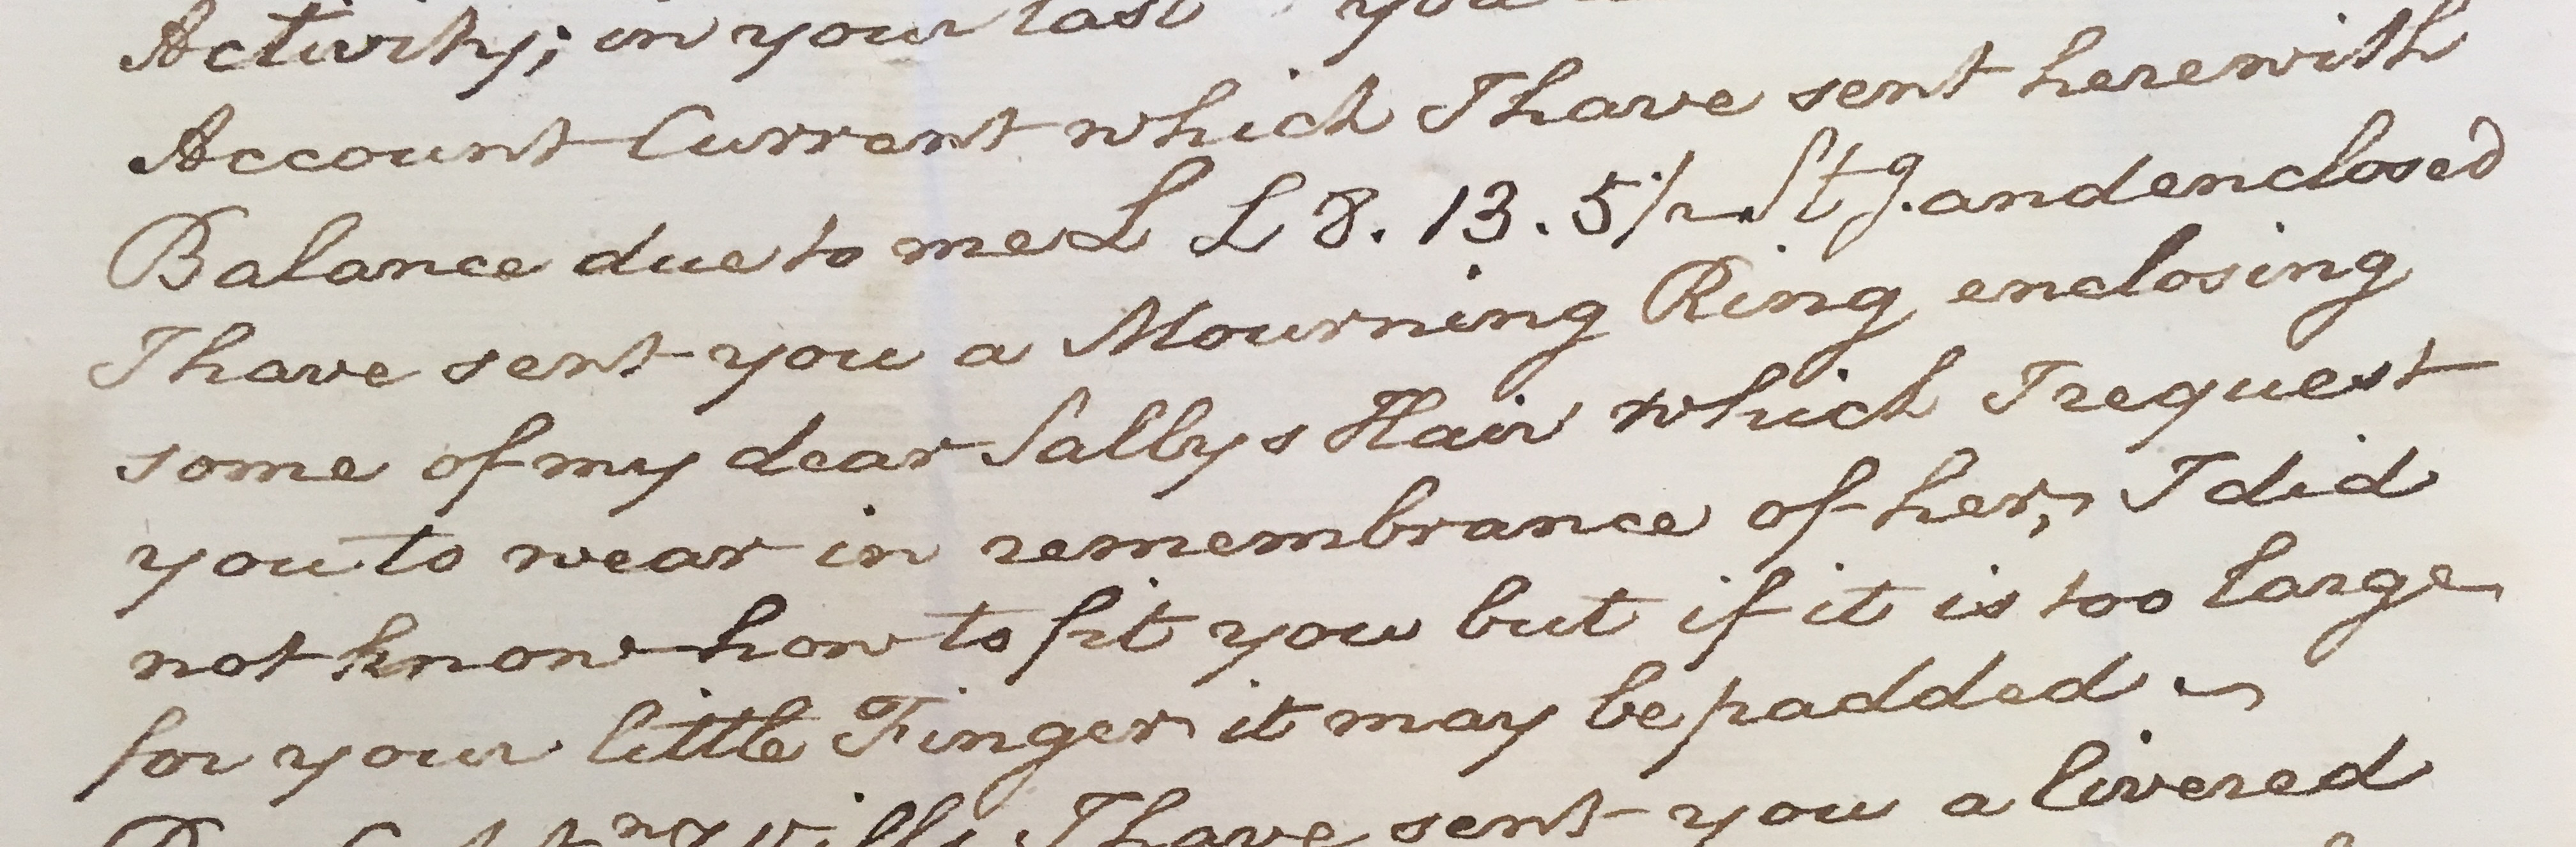 Activity; in your last you
Account Current which I have sent herewith
Balance due to me £ £ 8. 13. 5 1/2 Stg. and enclosed
I have sent you a Mourning Ring enclosing
some of my dear Sallys Hair which I request
you to wear in remembrance of her, I did
not know how to fit you but if it is too large
for your little Finger it may be padded
Wills I have sent you a livered